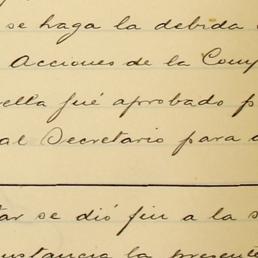 se haga la debida
Acciones de la Comp
ella fué aprobado p
al Secretario para
tar se dió fin a la s
ustancia la presente